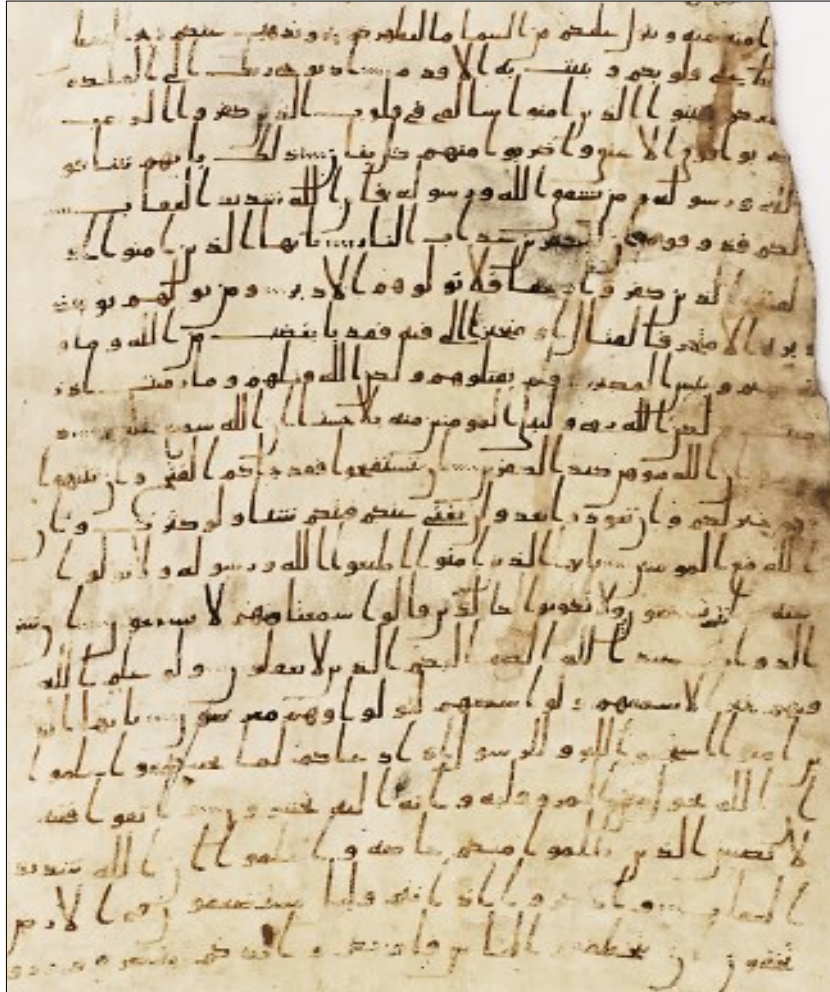 امنه منه وينزل عليكم من السما ما ليطهركم به ويذهب عنكم رجز الشيطا
بط على قلوبكم ويثبت به الاقدم اذ يوحى ربك الى الملئكه
معكم فثبتوا الذين امنوا سالقى في قلوب الذين كفروا الرعب
ضربوا فوق الاعنق واضربوا منهم كل بنن ذلك بانهم شاقو
الله ورسوله ومن يشقق الله ورسوله فان الله شديد العقاب
لكم فذوقوه وان للكفرين عذاب النار يايها الذين امنوا اذا
لقيتم الذين كفروا زحفا فلا تولوهم الادبر ومن يولهم يومئذ
دبره الا متحرفا لقتال او متحيزا الى فيه فقد با بغضب من الله وماو
يه جهنم وبئس المصير فلم تقتلوهم ولكن الله قتلهم وما رميت اذ
رميت ولكن الله رمى وليبلى المومنين منه بلا حسنا ان الله سميع عليم
وان الله موهن كيد الكفرين ان تستفتحوا فقد جاكم الفتح وان تنتهوا
فهو خير لكم وان تعودوا نعد ولن تغنى عنكم فيتكم شيا ولو كثرت وان
الله مع المومنين يايها الذين امنوا اطيعوا الله ورسوله ولا تولوا
عنه وانتم تسمعون ولا تكونوا كالذين قالوا سمعنا وهم لا يسمعون ان شر
الدواب عند الله الصم البكم الذين لا يعقلون ولو علم الله
فيهم خيرا لاسمعهم ولو اسمعهم لتولوا وهم معرضون يايها الذ
ين امنوا استجيبوا لله وللرسول اذا دعاكم لما يحييكم واعلموا
ان الله يحول بين المر وقلبه وانه اليه تحشرون واتقوا فتنه
لا تصيبن الذين ظلموا منكم خاصه واعلموا ان الله شديد
العقاب واذكروا اذ انتم قليل مستضعفون في الارض
تخفون ان يتخطفكم الناس فاويكم وايدكم بنصره ورز